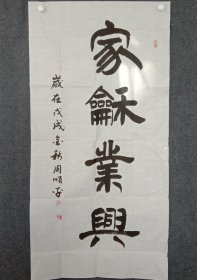 家龢業興
歲在戊戌金秋周順平